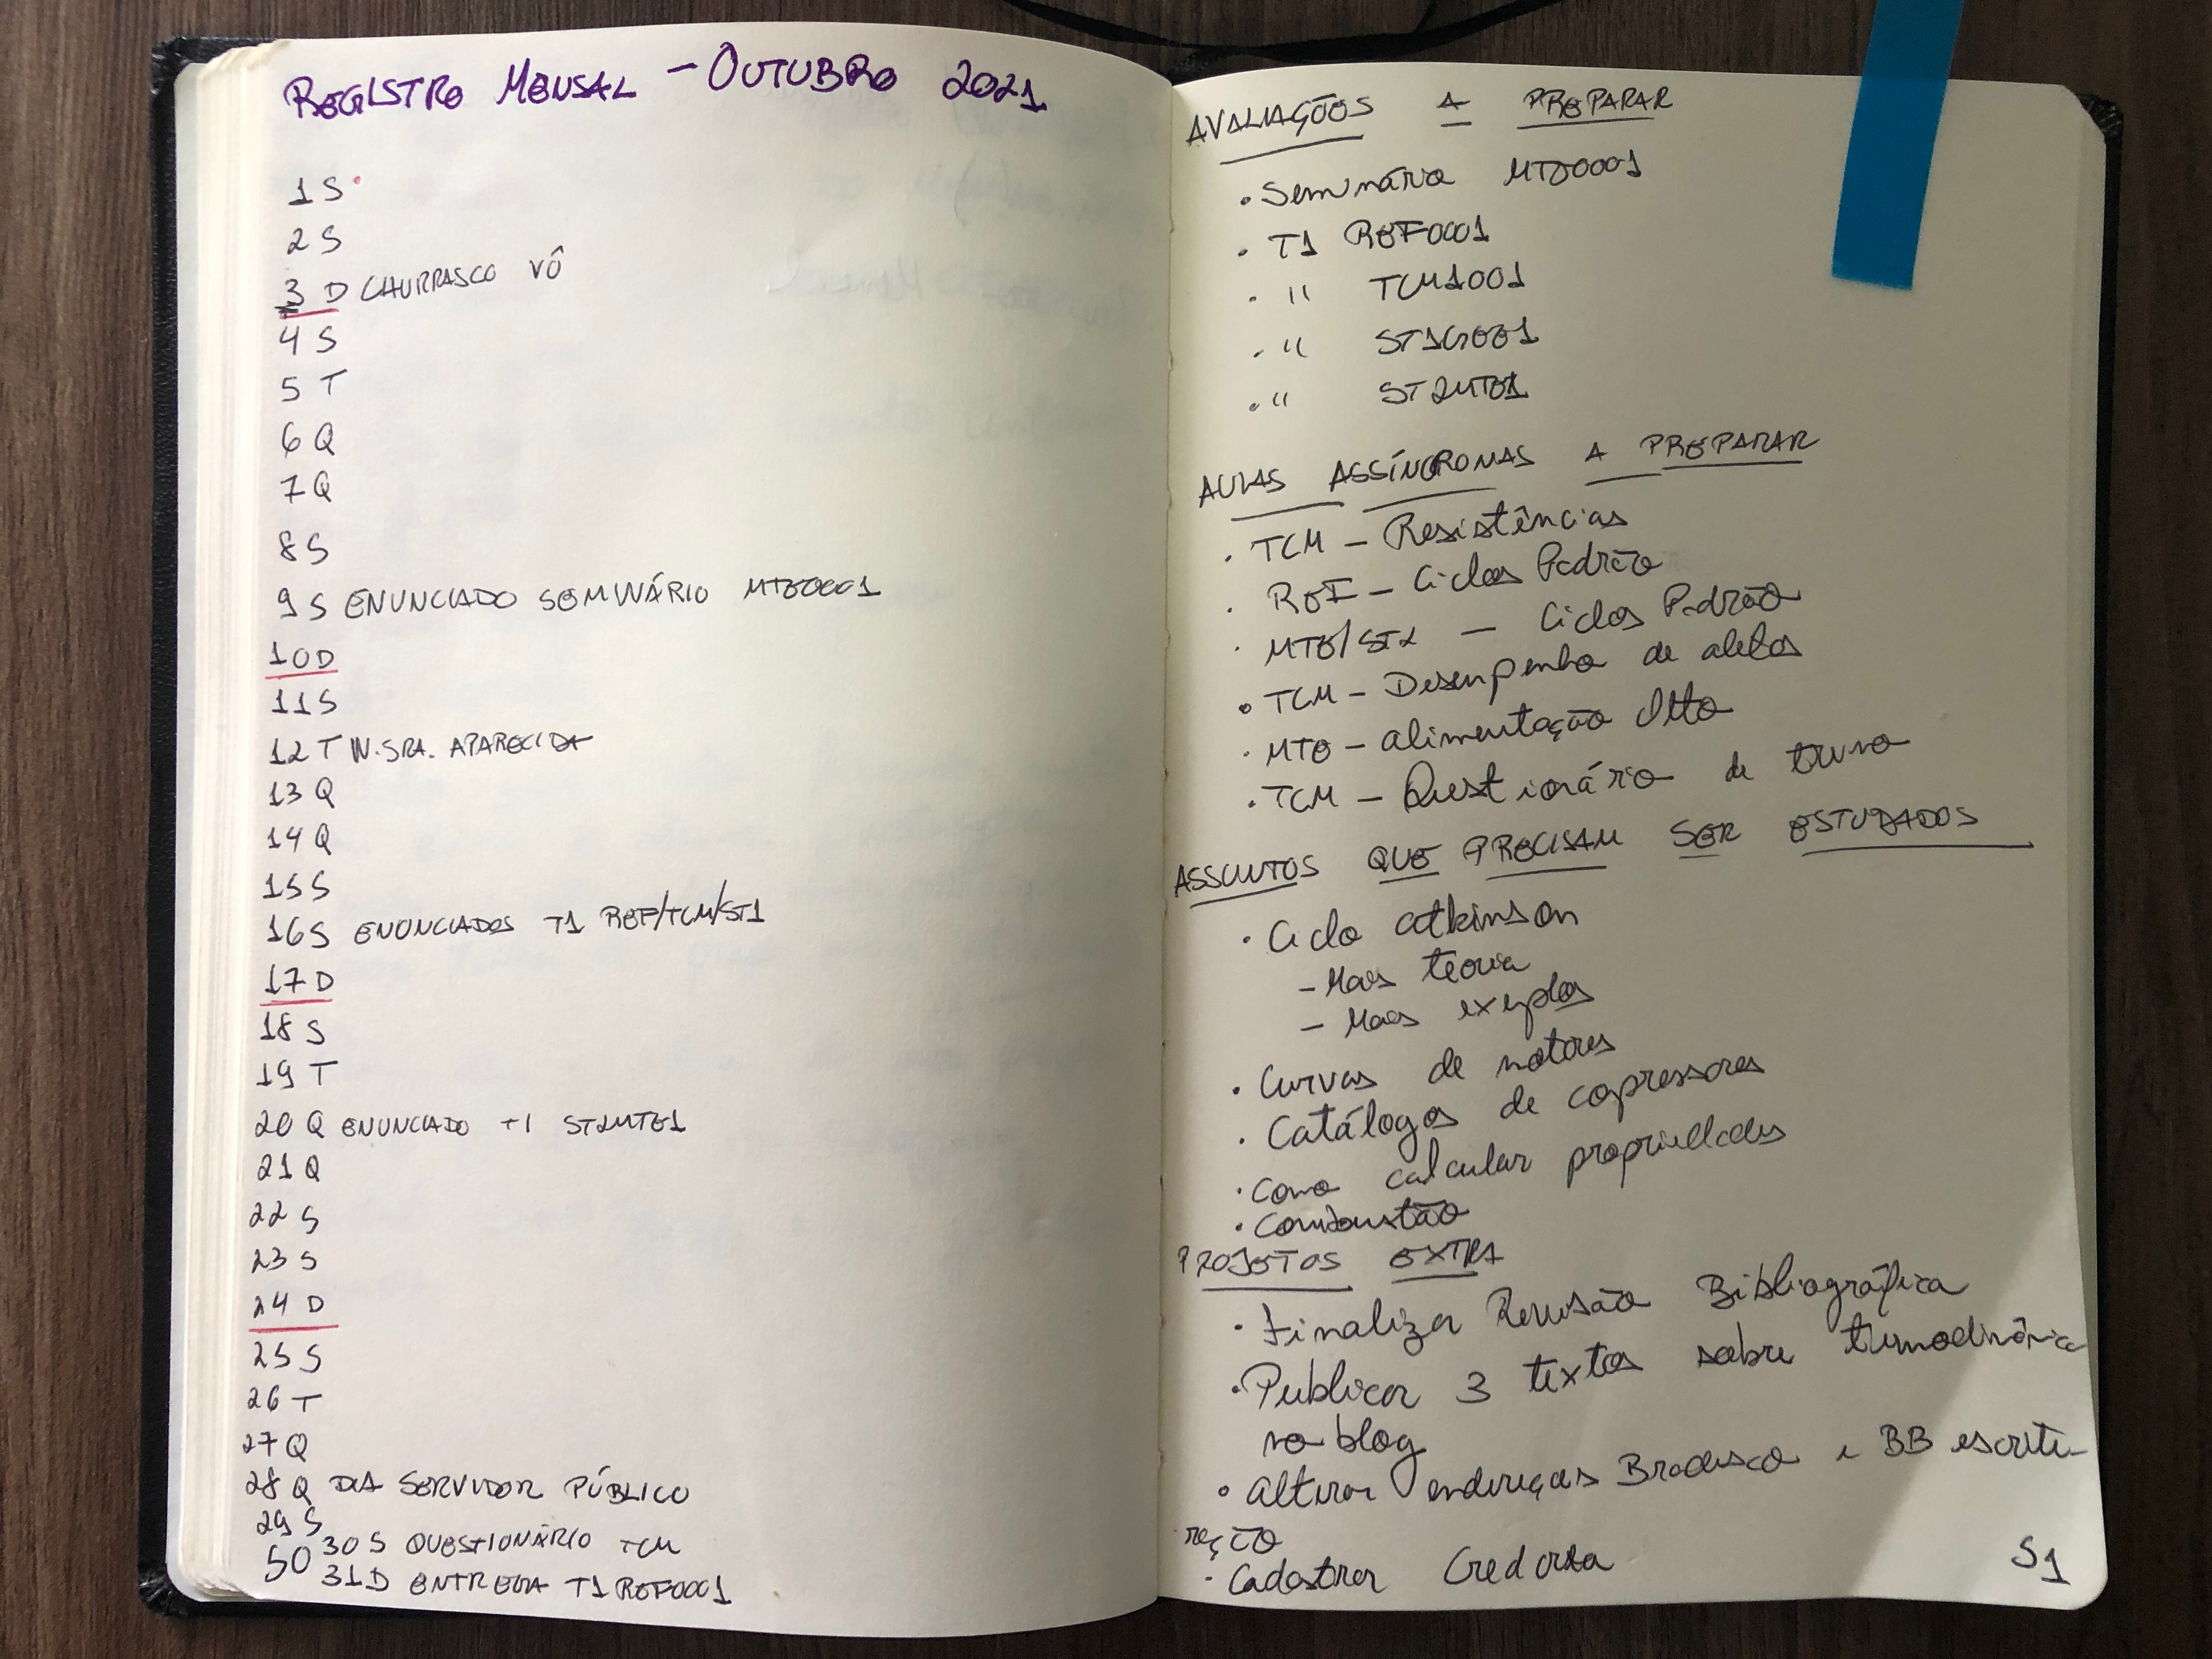 REGISTRO MENSAL - OUTUBRO 2021
1 S
2 S
3 D CHURRASCO VÔ
4 S
5 T
6 Q
7 Q
8 S
9 S ENUNCIADO SEMINÁRIO MTE0001
10 D
11 S
12 T N. SRA. APARECIDA
13 Q
14 Q
15 S
16 S ENUNCIADOS T1 REF/TCM/ST1
17 D
18 S
19 T
20 Q ENUNCIADO T1 ST2MTE1
21 Q
22 S
23 S
24 D
25 S
26 T
27 Q
28 Q DIA SERVIDOR PÚBLICO
29 S
30 S QUESTIONÁRIO TCM
31 D ENTREGA T1 REF0001
50
AVALIAÇÕES A PREPARAR
• Seminário MTE0001
• T1 REF0001
• " TCM1001
• " ST1GEE1
• " ST2MTE1
AULAS ASSÍNCRONAS A PREPARAR
• TCM - Resistências
• REF - Ciclos Padrão
• MTE/ST2 - Ciclos Padrão
• TCM - Desempenho de aletas
• MTE - Alimentação Otto
• TCM - Questionário de
ASSUNTOS QUE PRECISAM SER ESTUDADOS
• Ciclo Atkinson
- Mais teoria
- Mais exeplos
• Curvas de motores
• Catálogos de copressores
• Como calcular propriedades
• Combustão
PROJETOS EXTRA
• Finalizar Revisão Bibliográfica
• Publicar 3 textos sobre termodinâmica
no blog
• Alterar endereços Bradesco e BB escritu-
ração
• Cadastrar
51